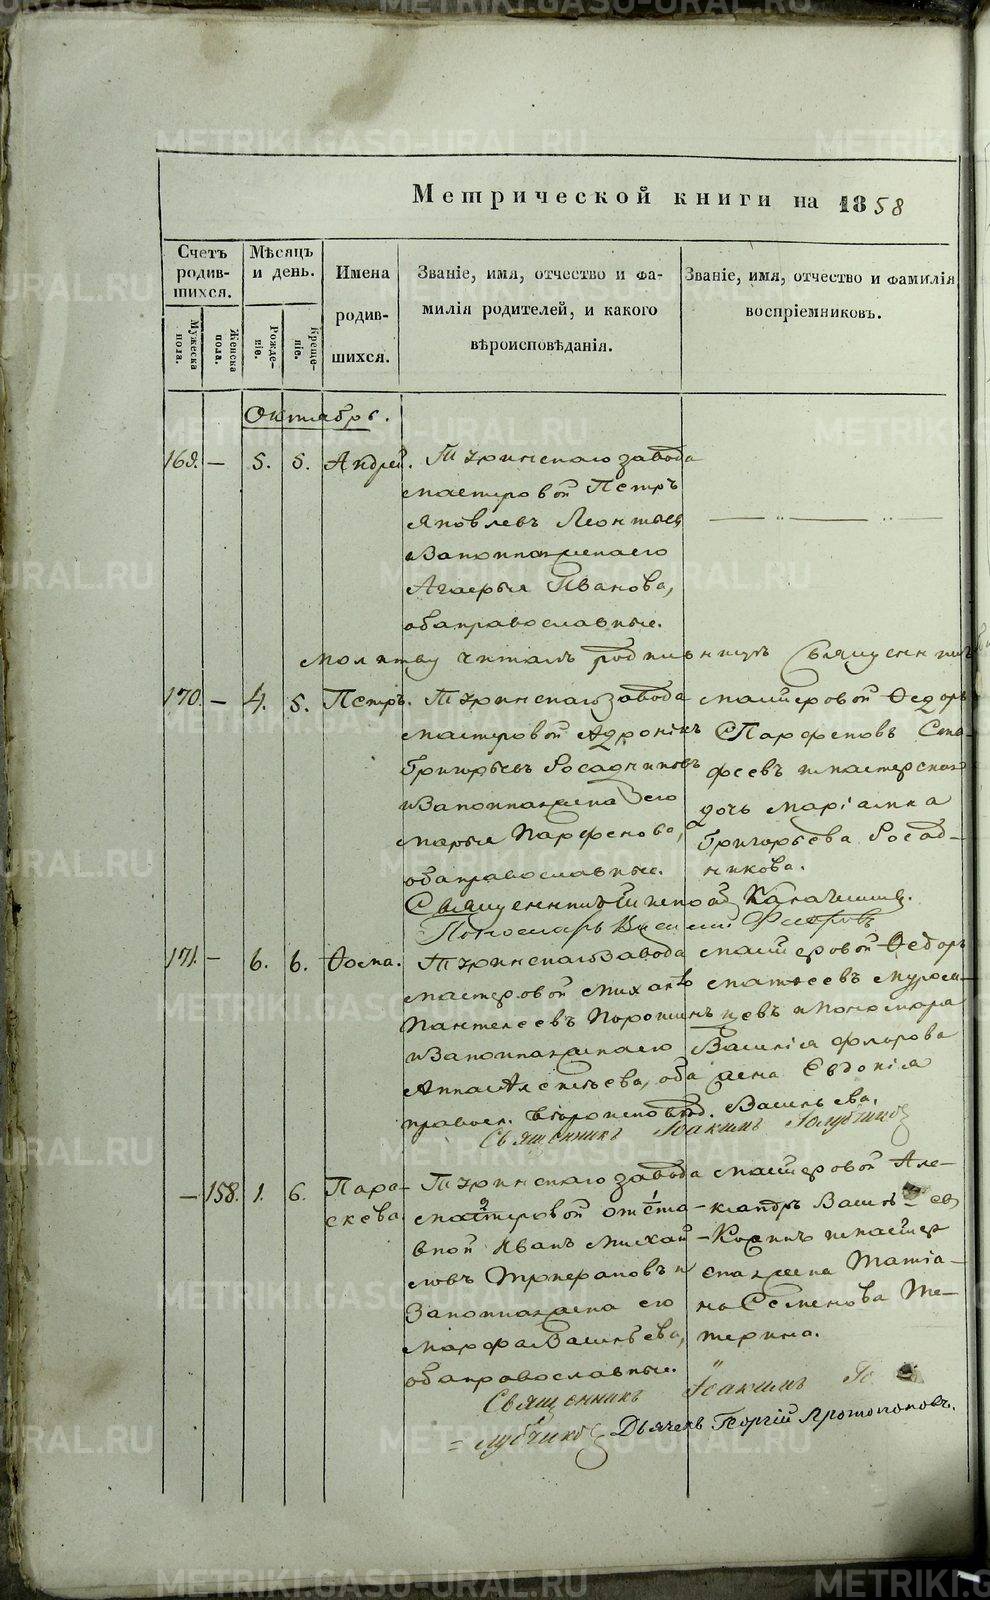 Метрической книги на 1858
Счетъ родив-шихся.
Мѣсяцъ и день.
Имена родив-шихся.
Званіе, имя, отчество и фа-
милія родителей, и какого
вѣроисповѣданія.
Званіе, имя, отчество и фамилія
воспріемниковъ.
Мужеска пола.
Женска пола.
Рожде-ніе.
Креще-ніе.
Октябрь.
169. — 5. 5. Андрей. Туринскаго завода
мастеровой Петръ
Яковлевъ Леонтьев
и законная жена его
Иванова,
оба православные.
Молитву читалъ родильницѣ Священникъ
170. — 4. 5. Петръ. Туринскаго завода
мастеровой Адроникъ
Григорьевъ Росадниковъ
и законная жена его
Марья Парфенова,
оба православные.
мастеровой Федоръ
Парфеновъ
и мастерская
дочь Маріамна
Григорьева Росад-
никова.
Священникъ
Пономарь Василий
171. — 6. 6. Фома. Туринскаго завода
мастеровой Михаилъ
Пантелеевъ Порошинъ
и законная жена его
Анна Алексѣева, оба
правосл. вѣроисповѣд.
мастеровой Федоръ
Матвеевъ Муром-
цевъ и Пономаря
Василія Флорова
жена Евдокія
Васильева.
Священникъ Іоакимъ Голубчиков
— 158. 1. 6. Пара-
скева.
Туринскаго завода
мастеровой отста-
вной Иванъ Михай-
ловъ и
Законная жена его
Марфа Васильева,
оба православные.
мастеровой Але-
ксандръ Василь ев
и мастер
ска жена Татіа-
на Семенова Те-
терина.
Священникъ Іоакимъ Го
= лубчиков Дьячекъ Георгій Протопоповъ.
METRIKI.GASO-URAL.RU